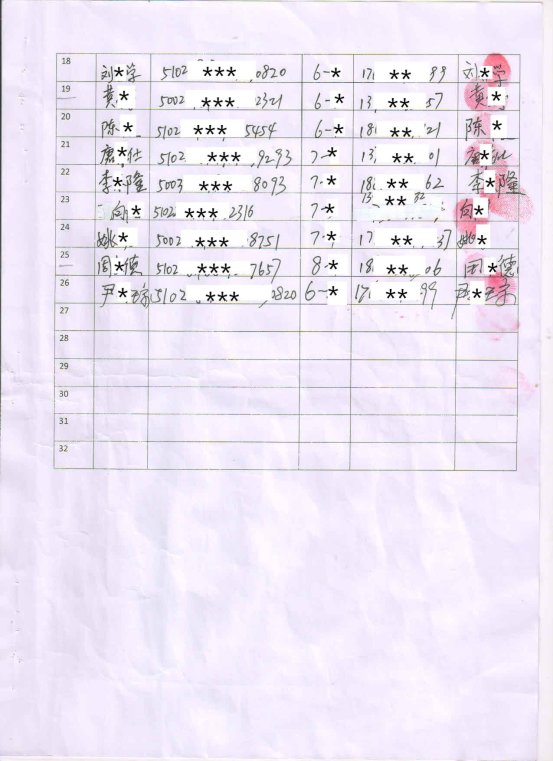 18 刘*学 5102 *** 0820 6-* 17 ** 99 刘*学
19 黄* 5002 *** 2321 6-* 13 ** 57 黄*
20 陈* 5102 *** 5454 6-* 18 ** 21 陈*
21 唐*仕 5102 *** 9293 7-* 13 ** 01 唐*仕
22 李*隆 5003 *** 8093 7-* 18 ** 62 李*隆
23 向* 5102 *** 2316 7-* 13 ** 32 向*
24 姚* 5002 *** 8751 7-* 17 ** 37 姚*
25 周*德 5102 *** 7657 8-* 18 ** 06 周*德
26 尹* 5102 *** 0820 6-* 17 ** 99 尹*
27
28
29
30
31
32